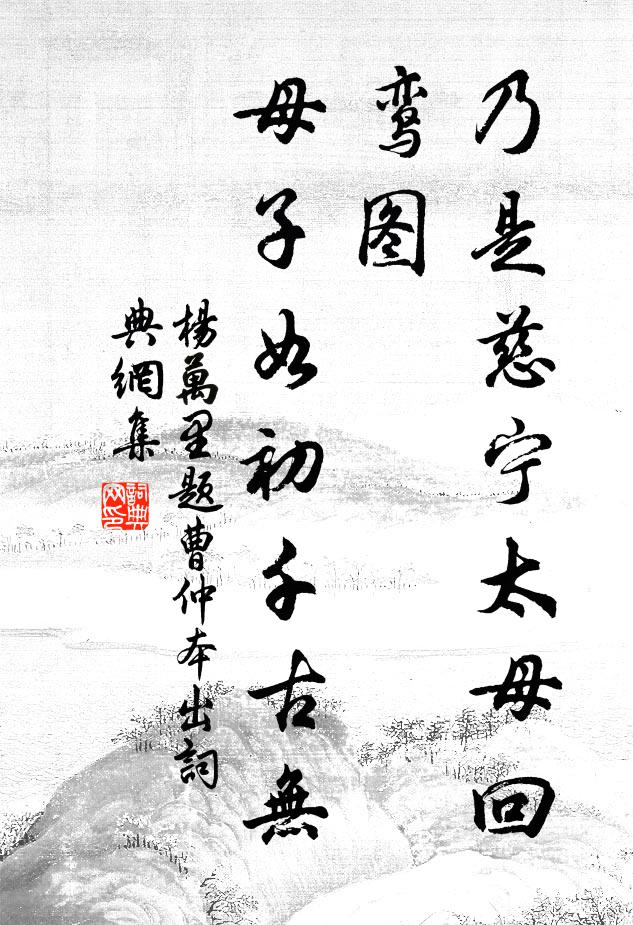 乃是慈宁太母回
鸾图
母子如初千古無
楊萬里题曹仲本出詞
典網集
詞典
网印